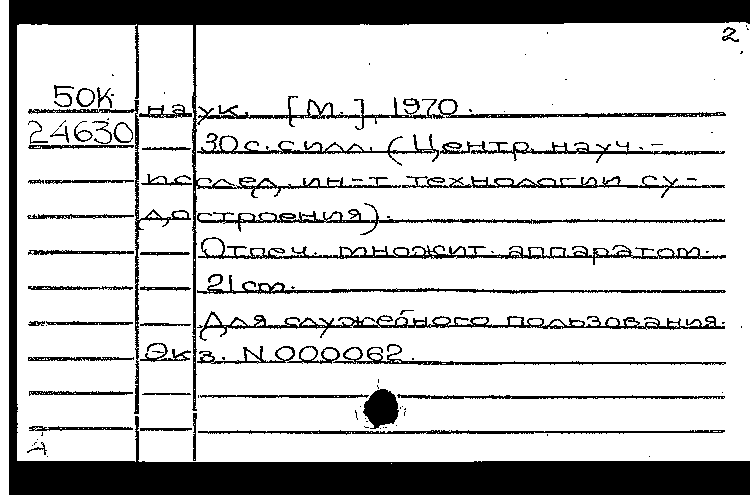 2
50К наук. [М.], 1970.
24630 30 с. с илл. (Центр. науч.-
исслед. ин-т технологии су-
достроения).
Отпеч. множит. аппаратом.
21 см.
Для служебного пользования.
Экз. N 000062.
А